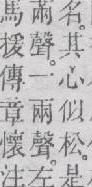 名其心似松是
兩聲一兩聲左
馬援傳章懷注